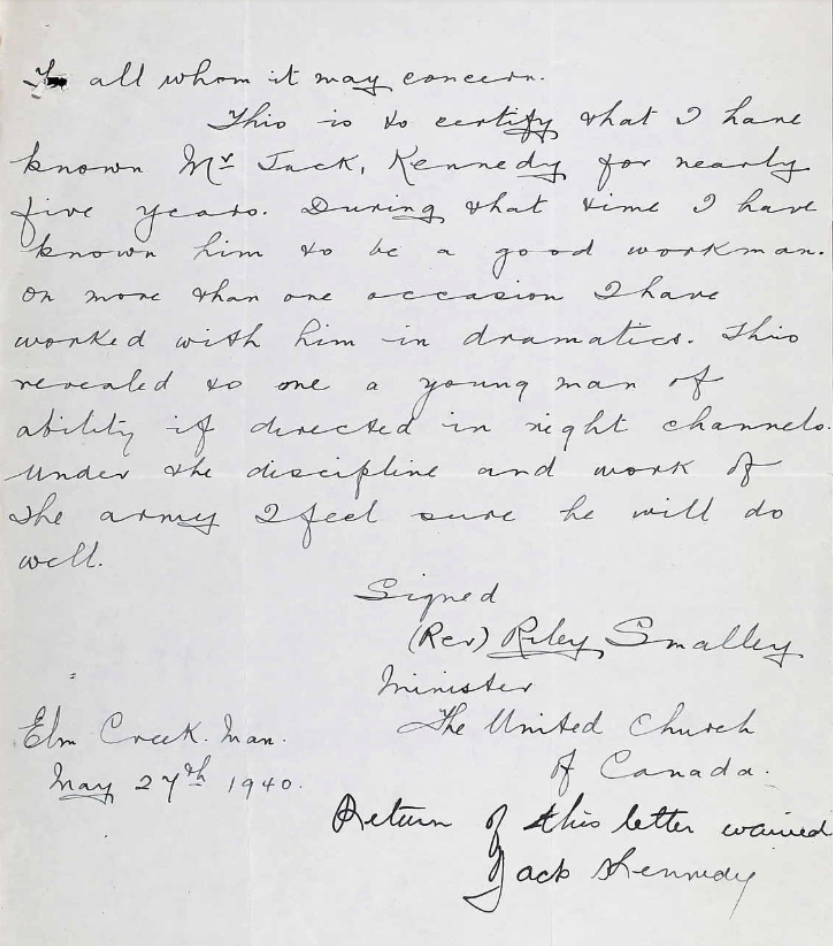 To all whom it may concern.
This is to certify that I have
known Mr Jack, Kennedy for nearly
five years. During that time I have
known him to be a good workman.
On more than one occasion I have
worked with him in dramatics. This
revealed to one a young man of
ability if directed in right channels.
Under the discipline and work of
the army I feel sure he will do
well.
Signed
(Rev) Riley Smalley
Minister
The United Church
of Canada.
Elm Creek. Man.
May 27th 1940.
Return of this letter waived
Jack Kennedy